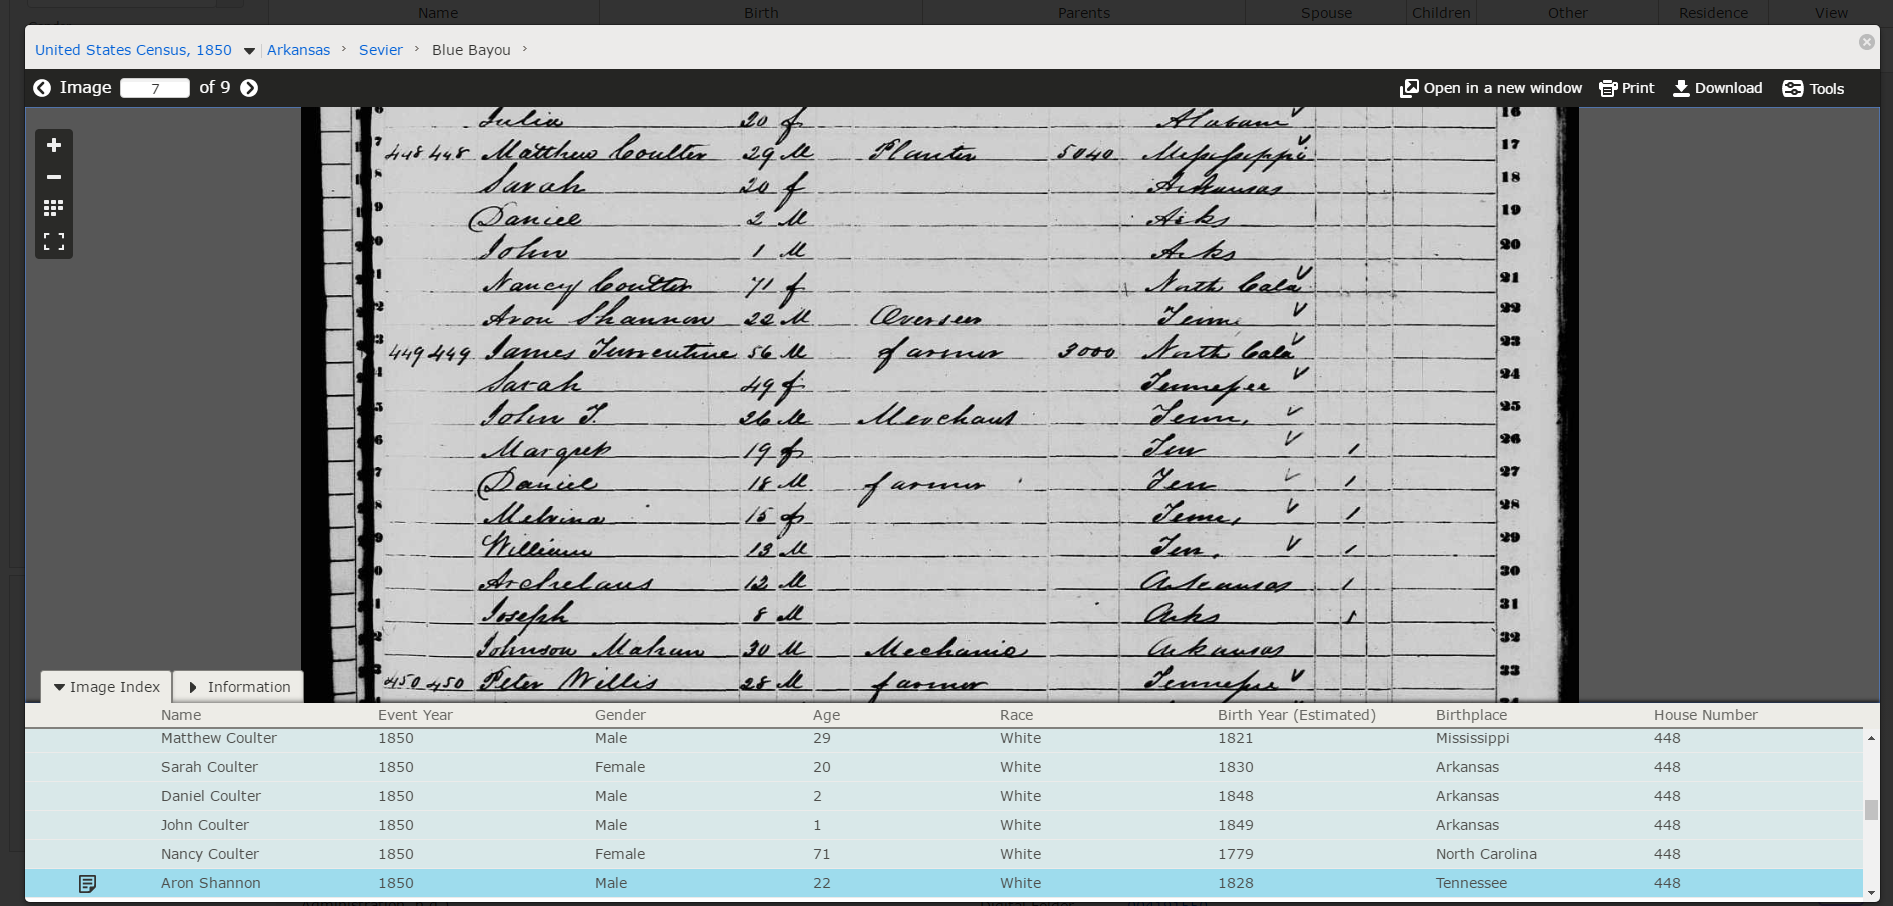 Name Birth Parents Spouse Children Other Residence View
United States Census, 1850 Arkansas › Sevier › Blue Bayou ›
Image 7 of 9 Open in a new window Print Download Tools
Julia 20 f Alabama 16
448 448 Matthew Coulter 29 M Planter 5040 Mississippi 17
Sarah 20 f Arkansas 18
Daniel 2 M Arks 19
John 1 M Arks 20
Nancy Coulter 71 f North Cala 21
Aron Shannon 22 M Overseer Tenn. 22
449 449 James Turrentine 56 M farmer 3000 North Cala 23
Sarah 49 f Tennessee 24
John T. 26 M Merchant Tenn. 25
Margret 19 f Ten 1 26
Daniel 18 M farmer Ten 1 27
Melvina 15 f Tenn. 1 28
William 13 M Ten. 1 29
Archelaus 12 M Arkansas 1 30
Joseph 8 M Arks 1 31
Johnson Mahan 30 M Mechanic Arkansas 32
450 450 Peter Willis 28 M farmer Tennessee 33
Image Index Information
Name Event Year Gender Age Race Birth Year (Estimated) Birthplace House Number
Matthew Coulter 1850 Male 29 White 1821 Mississippi 448
Sarah Coulter 1850 Female 20 White 1830 Arkansas 448
Daniel Coulter 1850 Male 2 White 1848 Arkansas 448
John Coulter 1850 Male 1 White 1849 Arkansas 448
Nancy Coulter 1850 Female 71 White 1779 North Carolina 448
Aron Shannon 1850 Male 22 White 1828 Tennessee 448